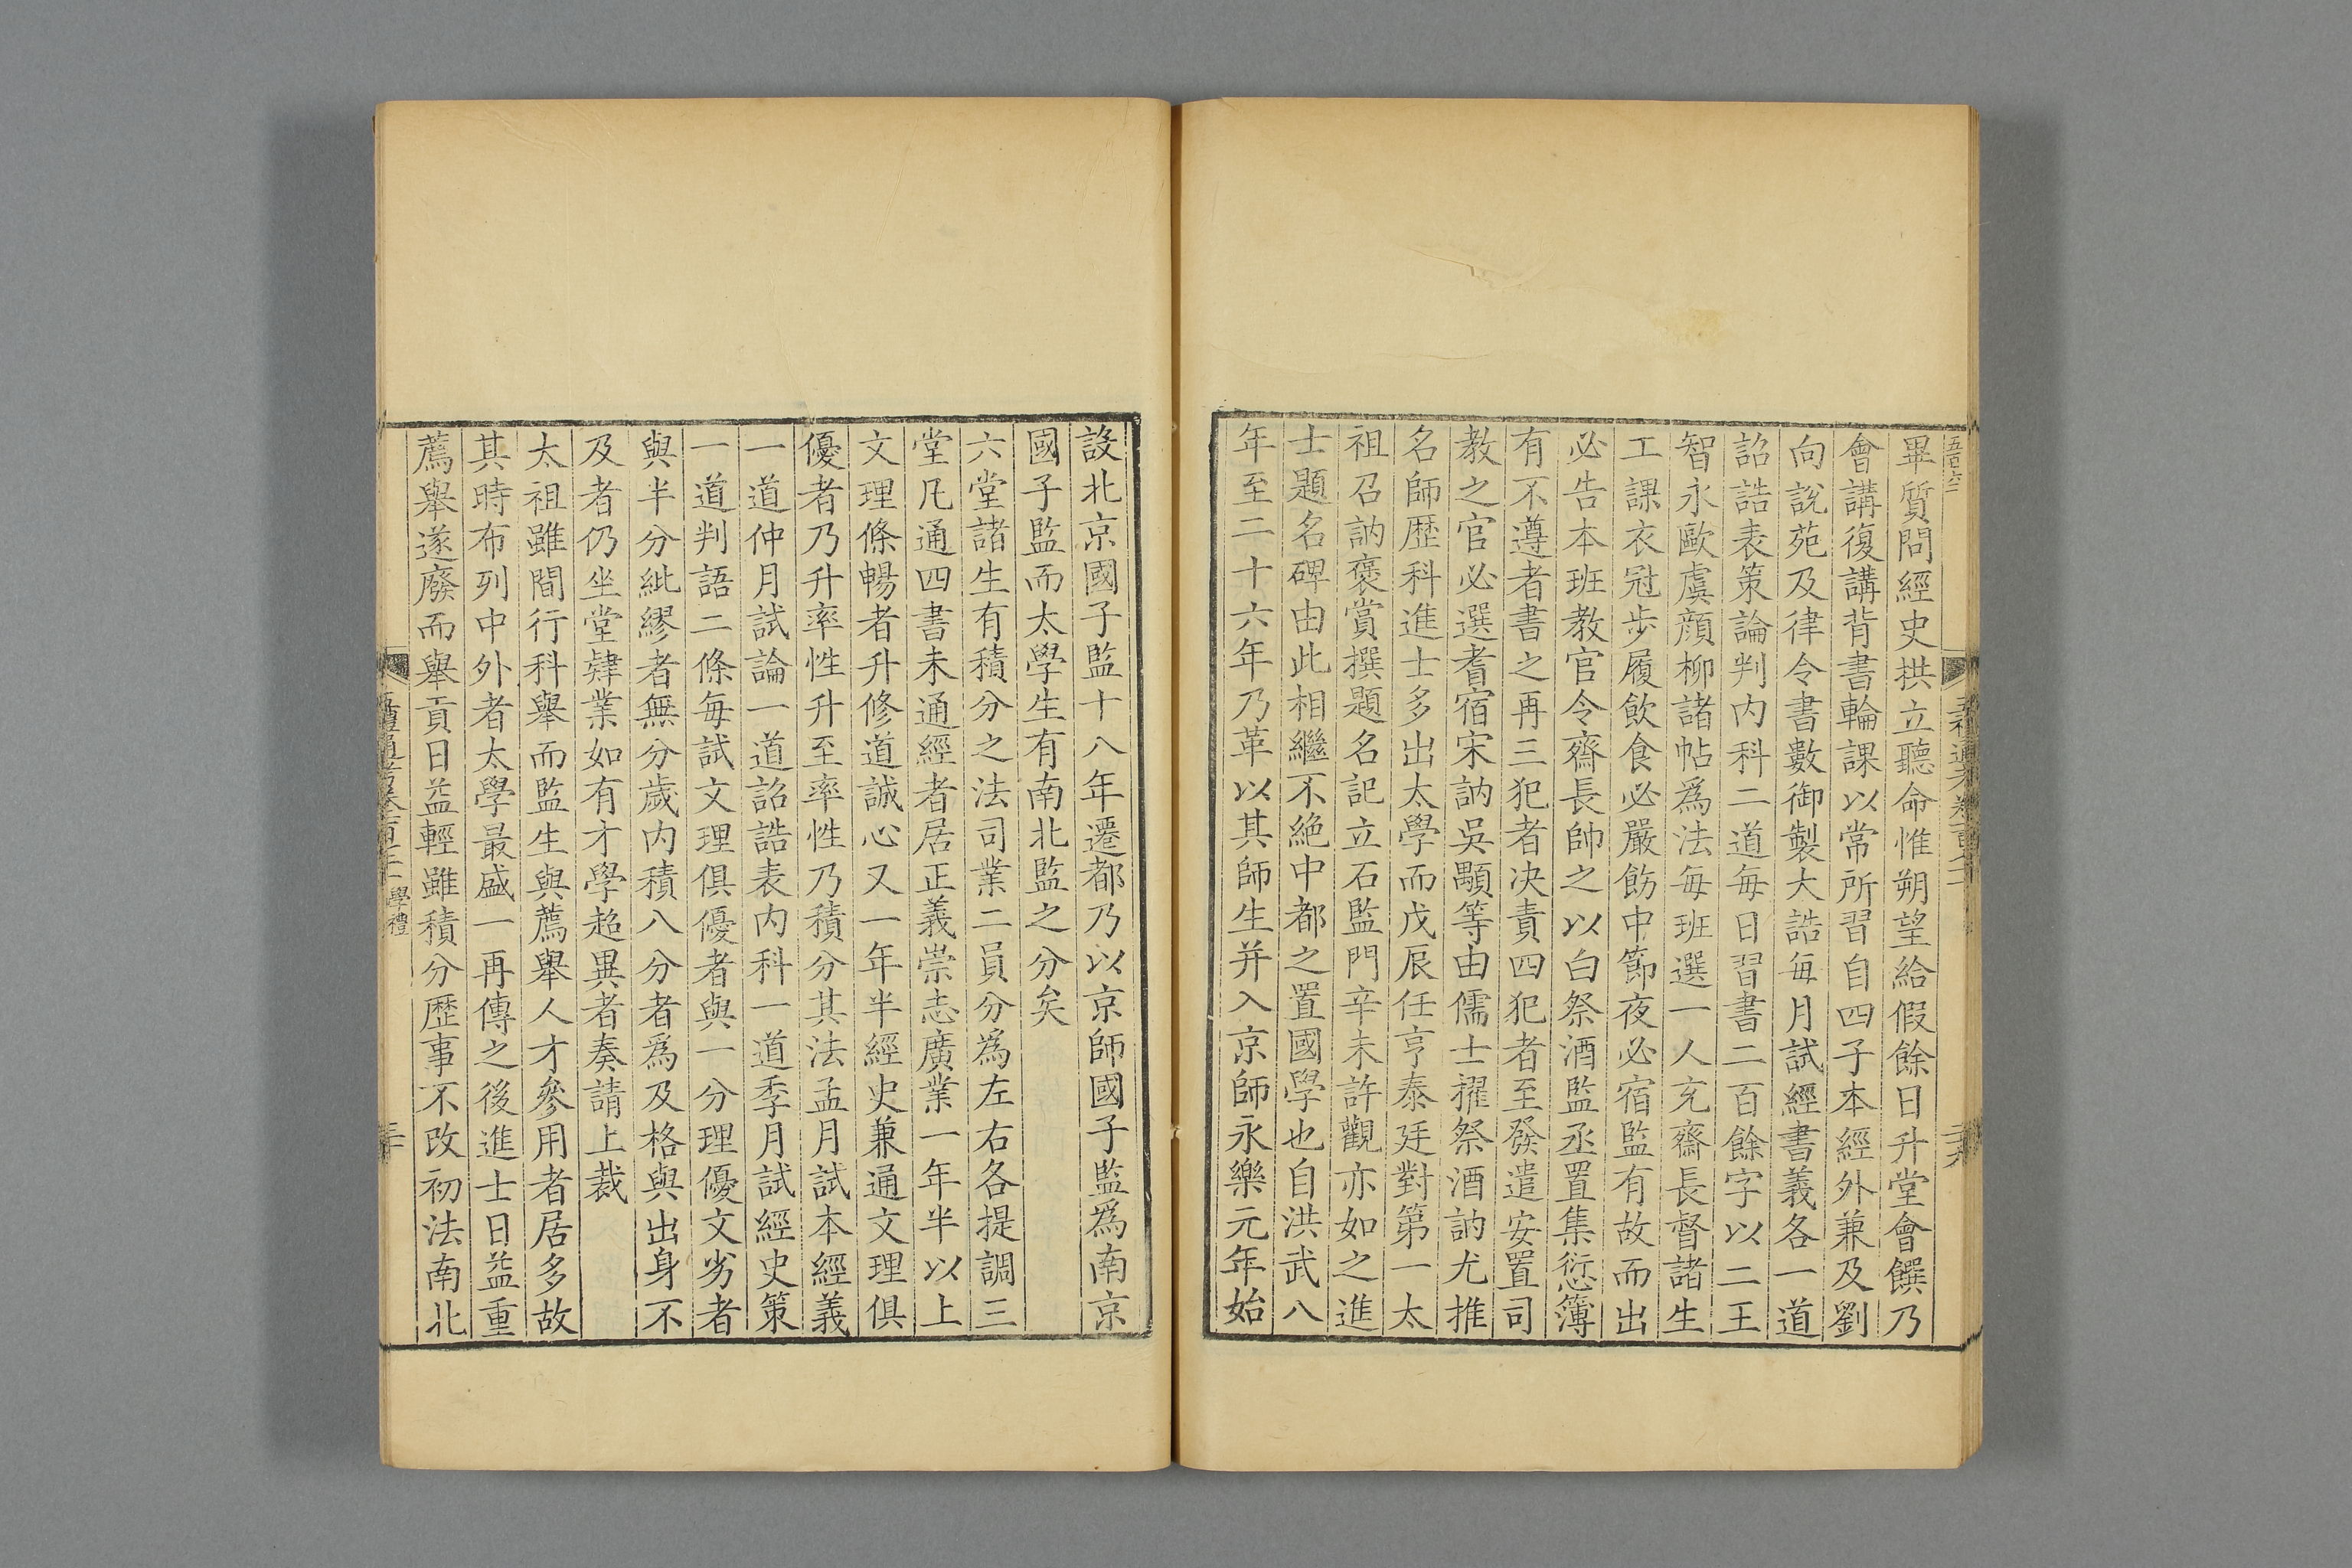 畢質問經史拱立聽命惟朔望給假餘日升堂會饌乃
會講復講背書輪課以常所習自四子本經外兼及劉
向說苑及律令書數御製大誥每月試經書義各一道
詔誥表策論判内科二道每日習書二百餘字以二王
智永歐虞顔柳諸帖爲法每班選一人充齋長督諸生
工課衣冠步履飲食必嚴飭中節夜必宿監有故而出
必告本班教官令齋長帥之以白祭酒監丞置集愆簿
有不遵者書之再三犯者決責四犯者至發遣安置司
教之官必選耆宿宋訥吳顒等由儒士擢祭酒訥尤推
名師歷科進士多出太學而戊辰任亨泰廷對第一太
祖召訥褒賞撰題名記立石監門辛未許觀亦如之進
士題名碑由此相繼不絶中都之置國學也自洪武八
年至二十六年乃革以其師生并入京師永樂元年始
設北京國子監十八年遷都乃以京師國子監爲南京
國子監而太學生有南北監之分矣
六堂諸生有積分之法司業二員分爲左右各提調三
堂凡通四書未通經者居正義崇志廣業一年半以上
文理條暢者升修道誠心又一年半經史兼通文理俱
優者乃升率性升至率性乃積分其法孟月試本經義
一道仲月試論一道詔誥表内科一道季月試經史策
一道判語二條每試文理俱優者與一分理優文劣者
與半分紕繆者無分歲内積八分者爲及格與出身不
及者仍坐堂肄業如有才學超異者奏請上裁
太祖雖間行科舉而監生與薦舉人才參用者居多故
其時布列中外者太學最盛一再傳之後進士日益重
薦舉遂廢而舉貢日益輕雖積分歷事不改初法南北
學禮